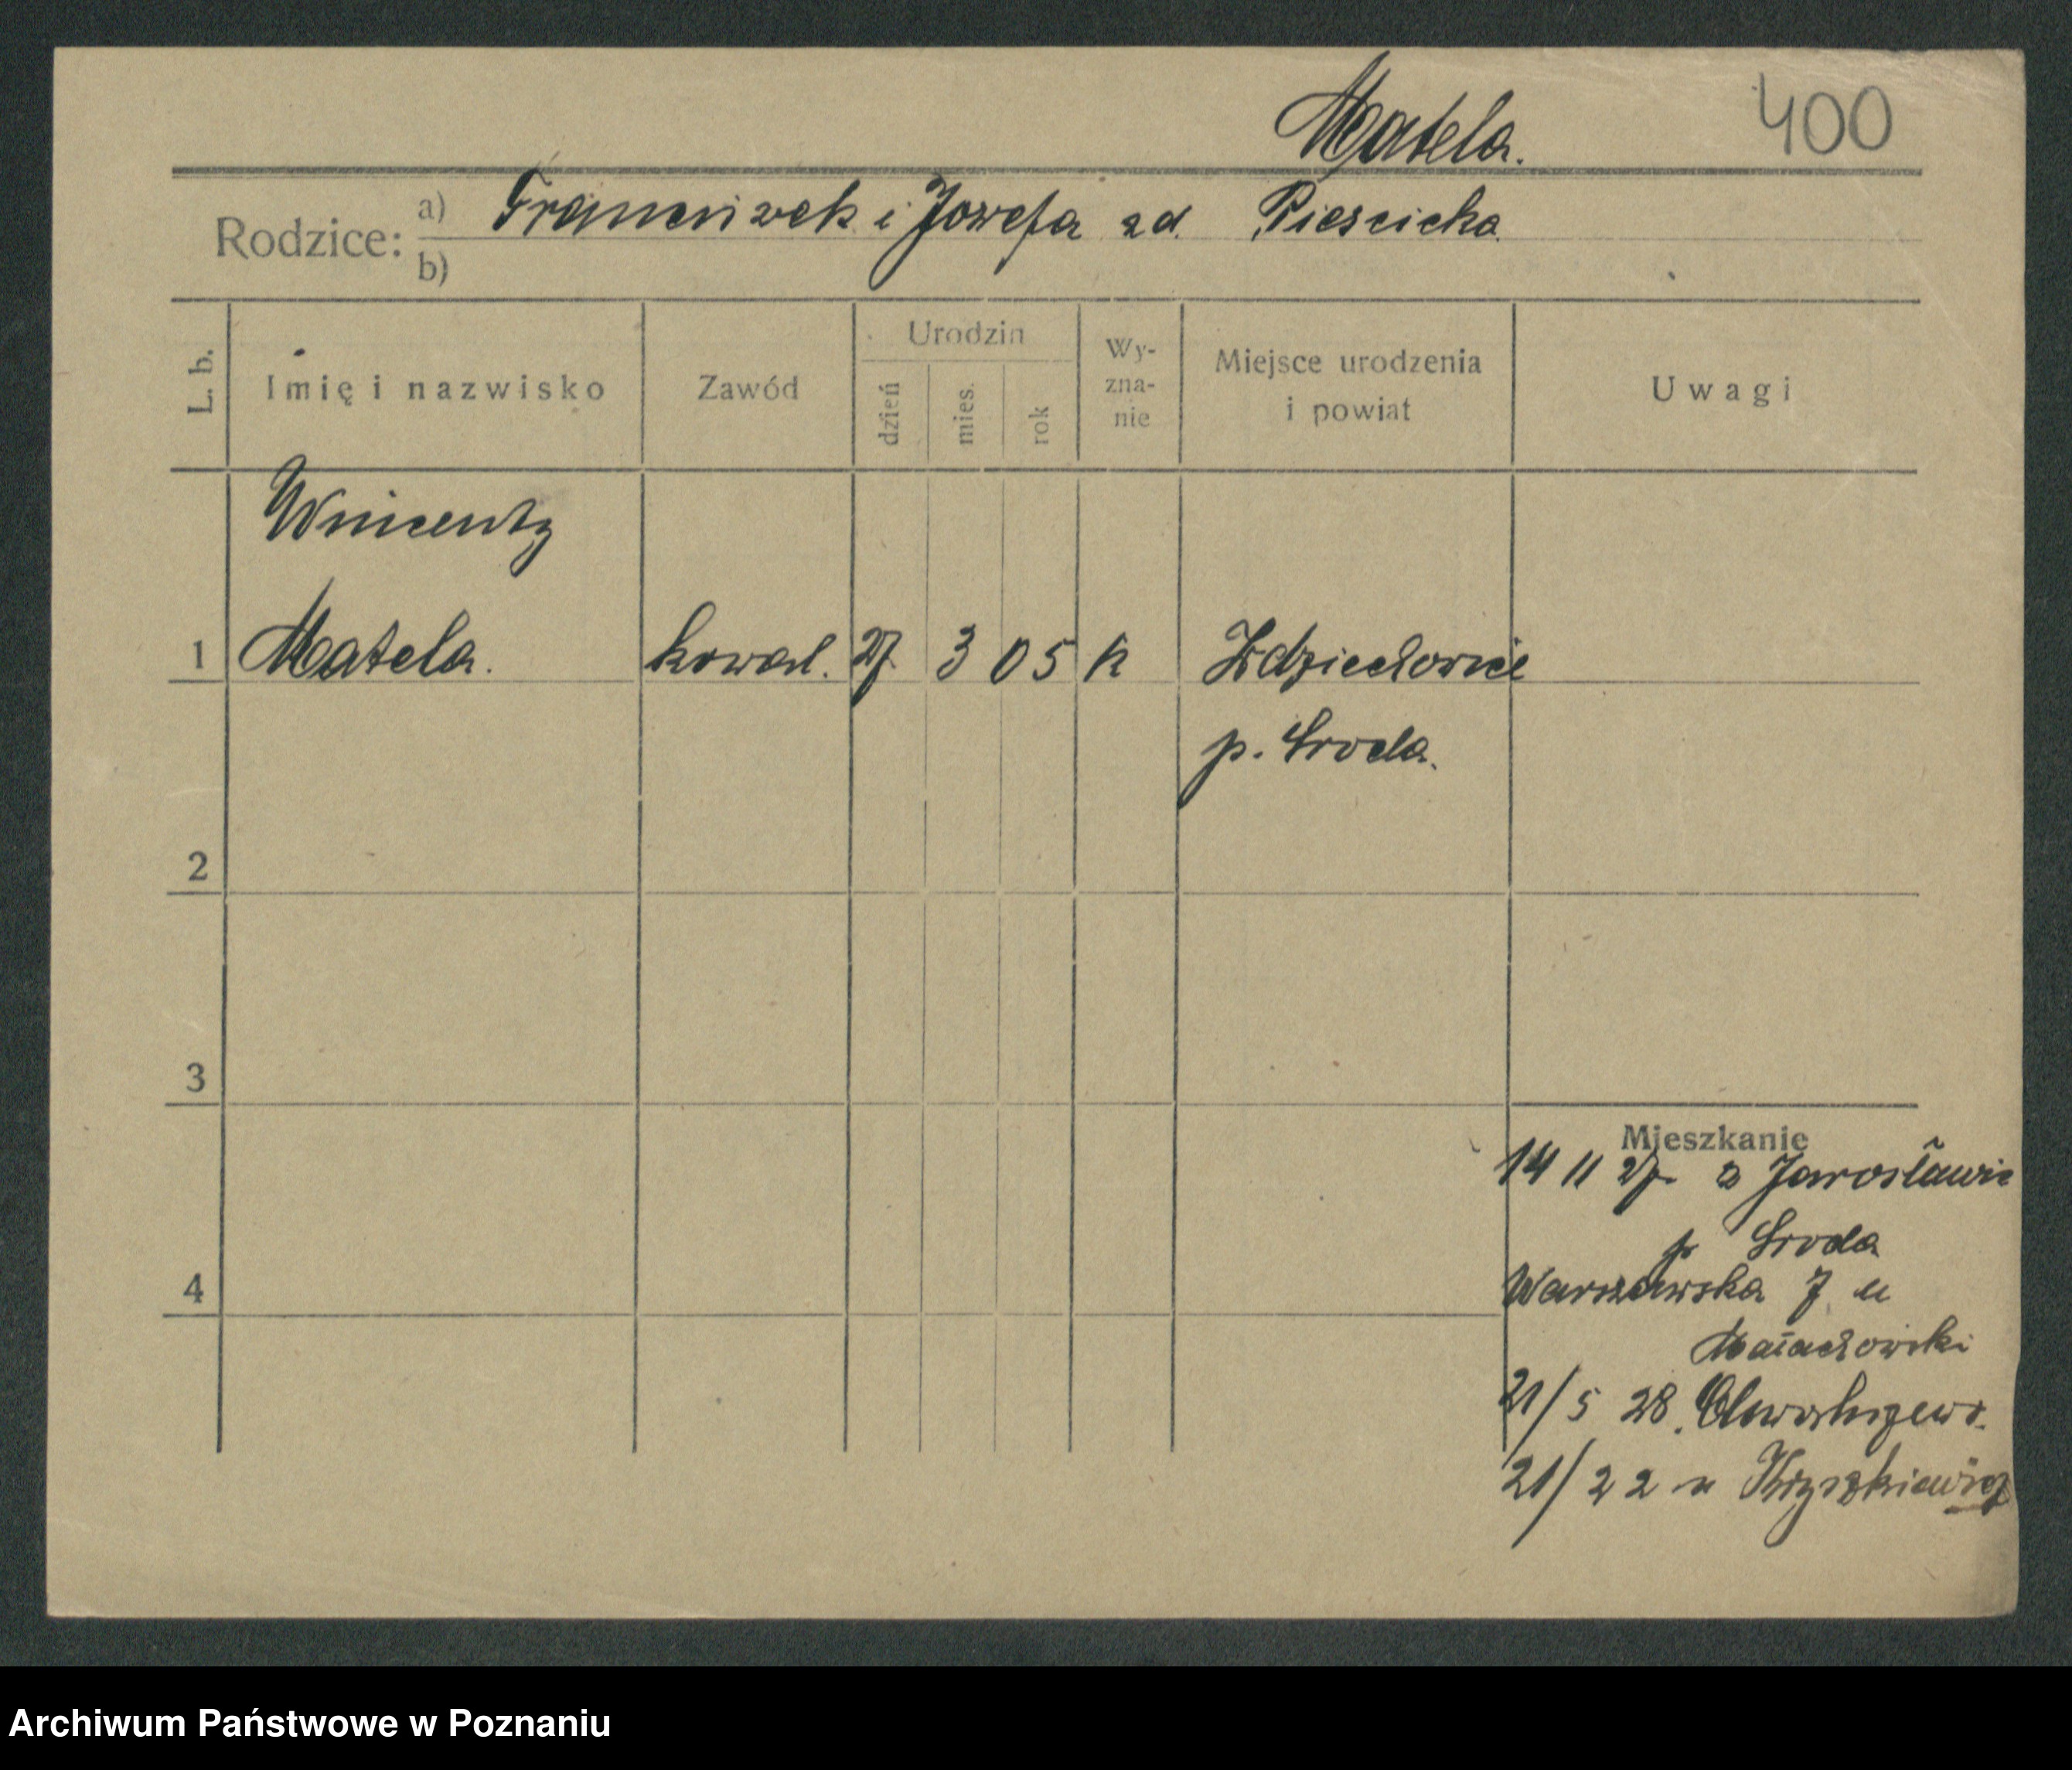 Matela. 400
Rodzice: a) Franciszek i Jozefa zd. Piescicka
b)
L. b. Imię i nazwisko Zawód Urodzin dzień mies. rok Wy-zna-nie Miejsce urodzenia i powiat Uwagi
Wincenty
1 Matela. kowal. 27. 3 05 k Zdziechowice
p. Sroda.
2
3
Mieszkanie
14 11 27. z Jarosławic
p Sroda
4 Warszawska 7 u
Małachowski
21/5 28.
21/22 u
Archiwum Państwowe w Poznaniu